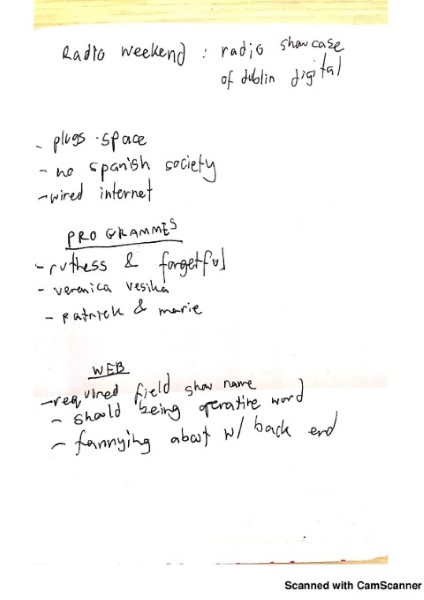 Radio weekend : radio showcase
of dublin digital
- plugs . space
- no spanish society
- wired internet
PROGRAMMES
- ruthess & forgetful
- veronica vesika
- patrick & marie
WEB
- required field show name
- should being operative word
- fannying about w/ back end
Scanned with CamScanner